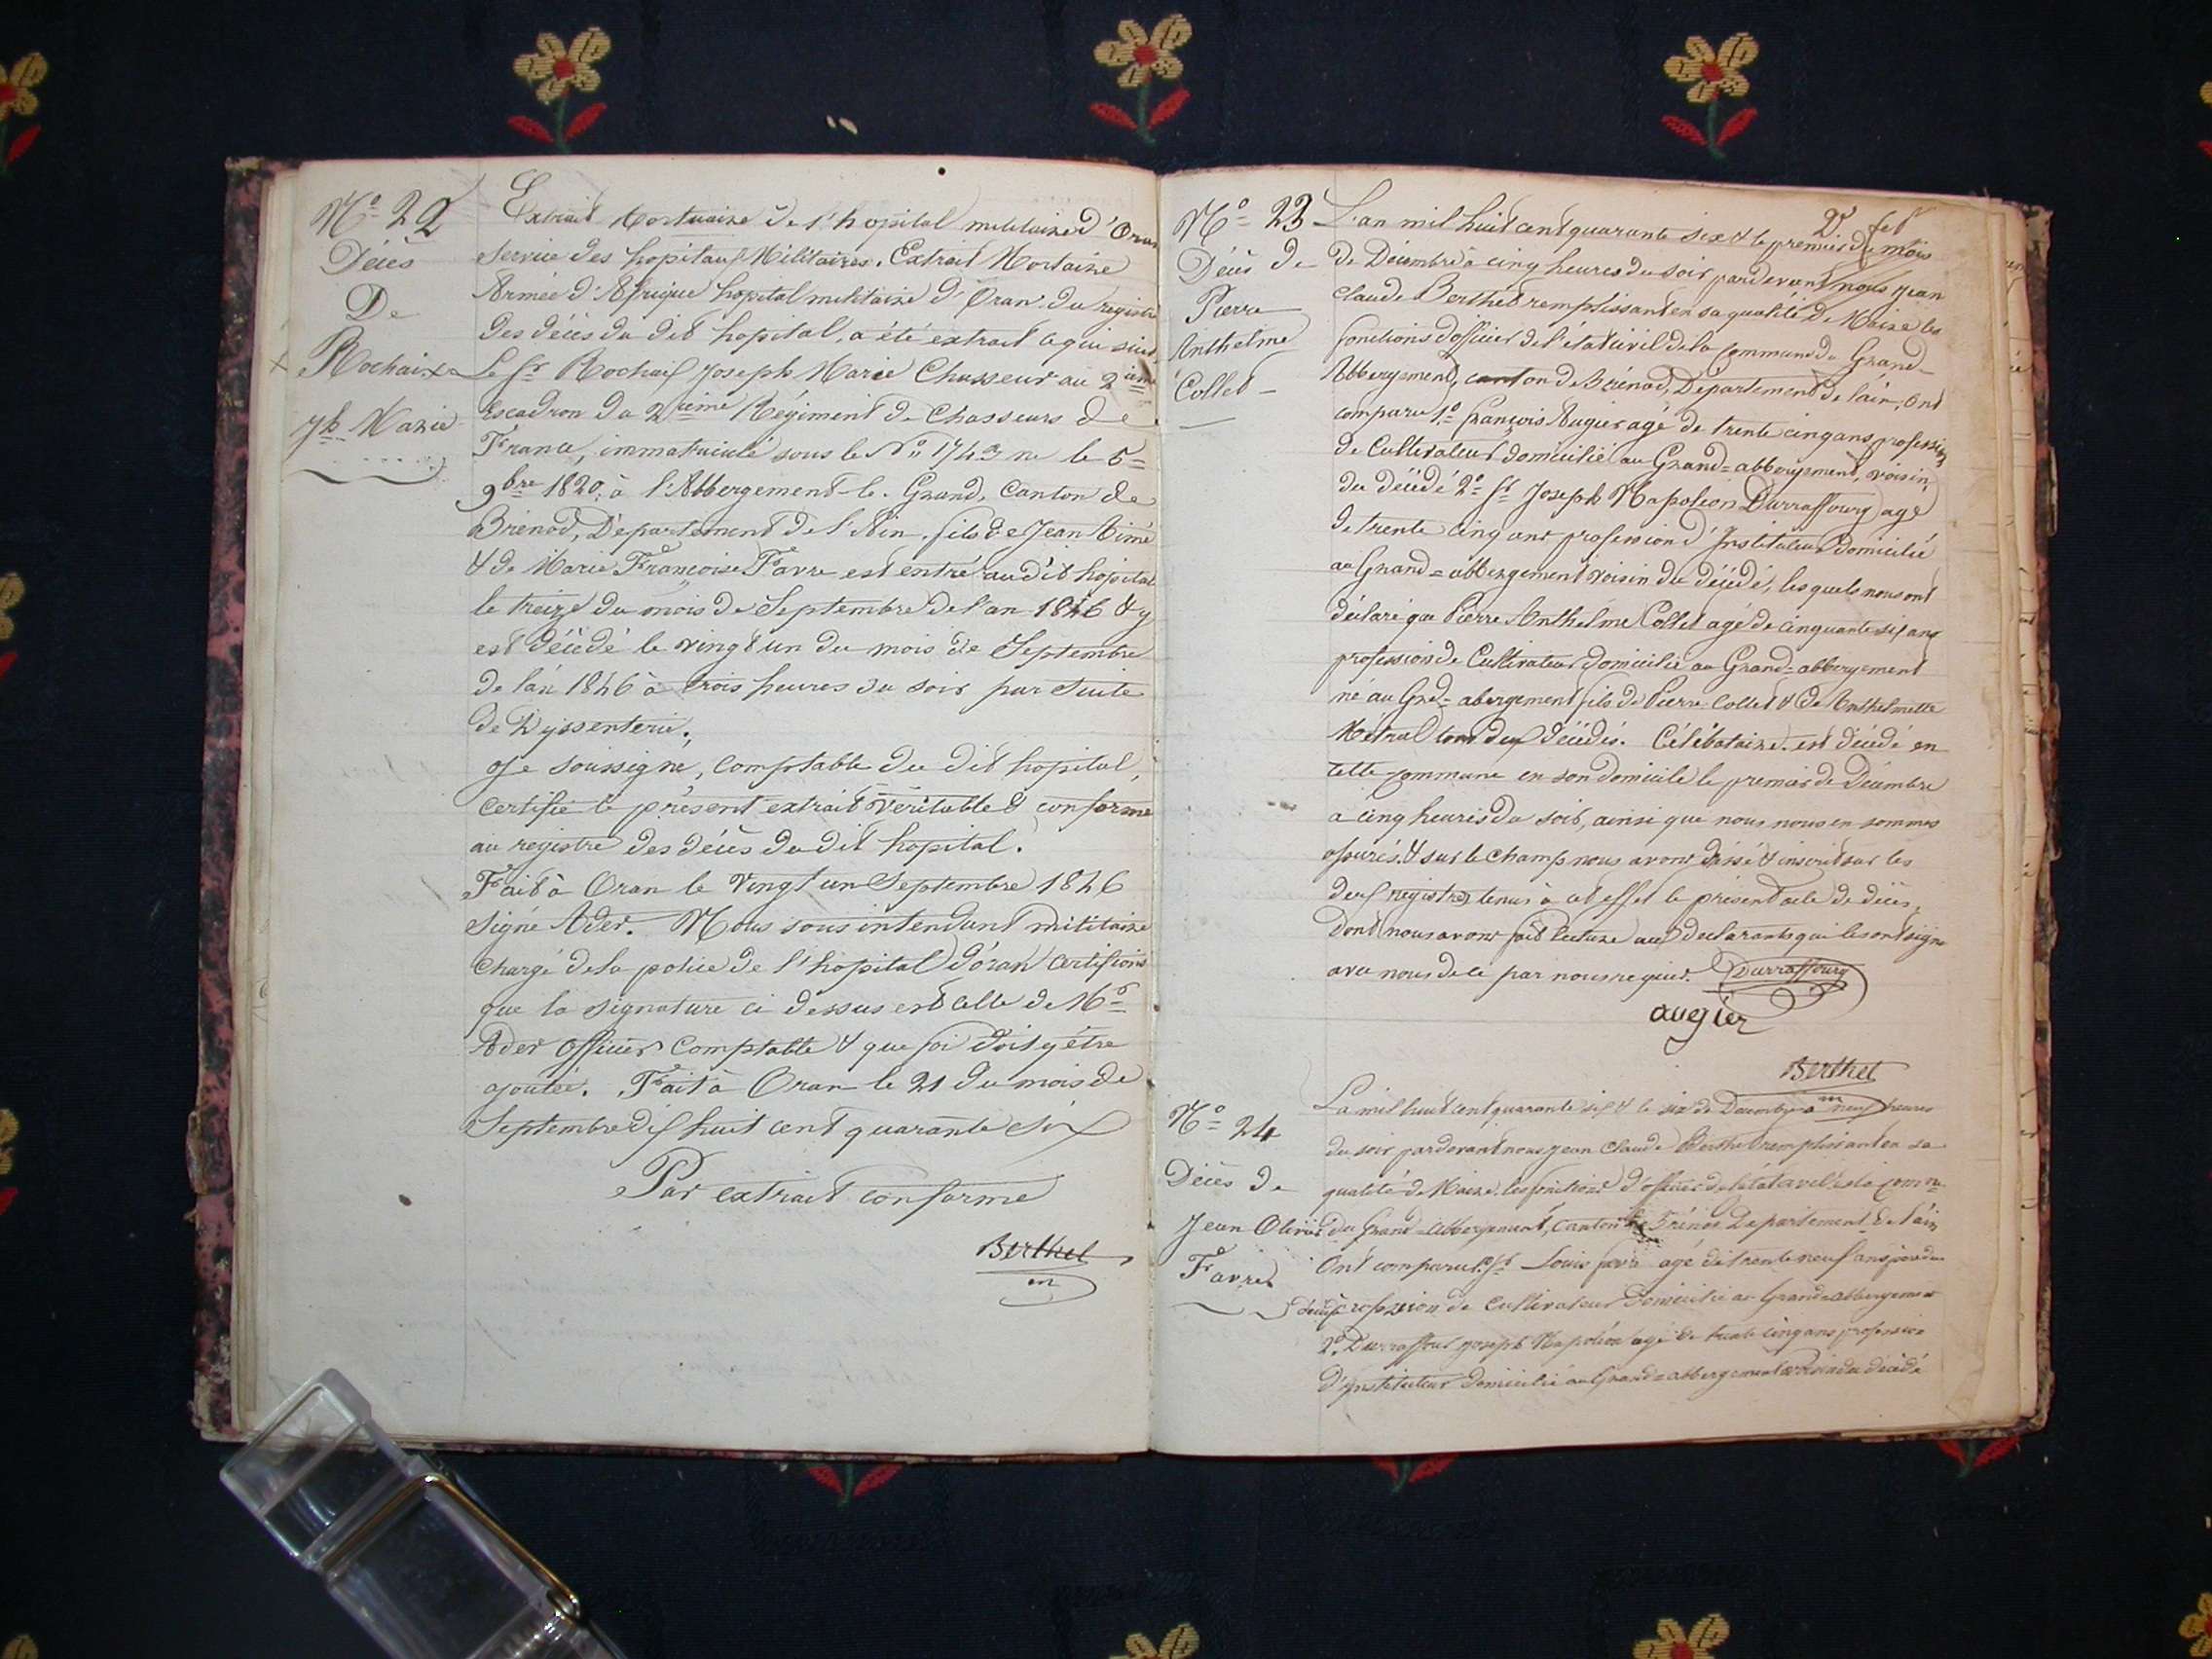 No 22
Décès
De
Rochaix
Jh Marie
Extrait Mortuaire de l'hopital militaire d'Oran
Service des hopitaux Militaires. Extrait Mortaire
Armée d'Afrique hopital militaire d'Oran. du registre
des décès du dit hopital, a été extrait ce qui suit
Le Sr Rochaix Joseph Marie Chasseur au 2ième
Escadron du 2ième Régiment de Chasseurs de
France, immatriculé sous le No 1743 né le 5
9bre 1820, à l'Abbergement-le-Grand, Canton de
Brénod, Département de l'Ain, fils de Jean Aimé
& de Marie Françoise Favre est entré au dit hopital
le treize du mois de Septembre de l'an 1846 & y
est décédé le vingt un du mois de Septembre
de l'an 1846 à trois heures du soir par suite
de Dyssenterie.
Je soussigné, comptable du dit hopital,
certifie le présent extrait véritable & conforme
au registre des décès du dit hopital.
Fait à Oran le vingt un Septembre 1846
signé Ader. Nous sous intendant militaire
chargé de la police de l'hopital d'oran certifions
que la signature ci dessus est celle de Mr
Ader officier Comptable & que foi doit y être
ajoutée. Fait à Oran le 21 du mois de
Septembre dix huit cent quarante six
Par extrait conforme
Berthet
m
No 23
Décès de
Pierre
Anthelme
Collet
L'an mil huit cent quarante six & le premier du mois
de Décembre à cinq heures du soir pardevant nous jean
claude Berthet remplissant en sa qualité de Maire les
fonctions d'officier de l'état civil de la commune du Grand-
Abbergement, canton de Brénod, Département de l'ain, ont
comparu 1o françois Augier agé de trente cinq ans profession
de Cultivateur domicilié au Grand=abbergement, voisin
du décédé 2o Sr Joseph Napoléon Durraffourg agé
de trente cinq ans profession d'Instituteur domicilié
au Grand=abbergement voisin du décédé, les quels nous ont
déclaré que Pierre Anthelme Collet agé de cinquante six ans
profession de Cultivateur domicilié au Grand=abbergement
né au Grd=abergement fils de Pierre Collet & de Anthelmette
Métral tous deux décédés. Célébataire. est décédé en
cette commune en son domicile le premier de Décembre
à cinq heures du soir, ainsi que nous nous en sommes
assurés. & sur le champ nous avons dréssé & inscrit sur les
deux registres tenus à cet effet le présent acte de décès,
dont nous avons fait lecture aux declarants qui les ont signé
avec nous de ce par nous requis. Durraffourg
augier
Berthet
m
No 24
Décès de
Jean Olivier
Favre
La mil huit cent quarante six & le six de Décembre à neuf heures
du soir pardevant nous jean claude Berthet remplissant en sa
qualité de Maire les fonctions d'officier de l'état civil de la comm
du Grand=abbergement, canton de Brénod Departement de l'ain
Ont comparu 1o Sr Louis favre agé de trente neuf ans
profession de Cultivateur domicilié au Grand=abbergement
2o Durraffour joseph Napoléon agé de trente cinq ans profession
d'Instituteur domicilié au Grand=abbergement voisin du décédé